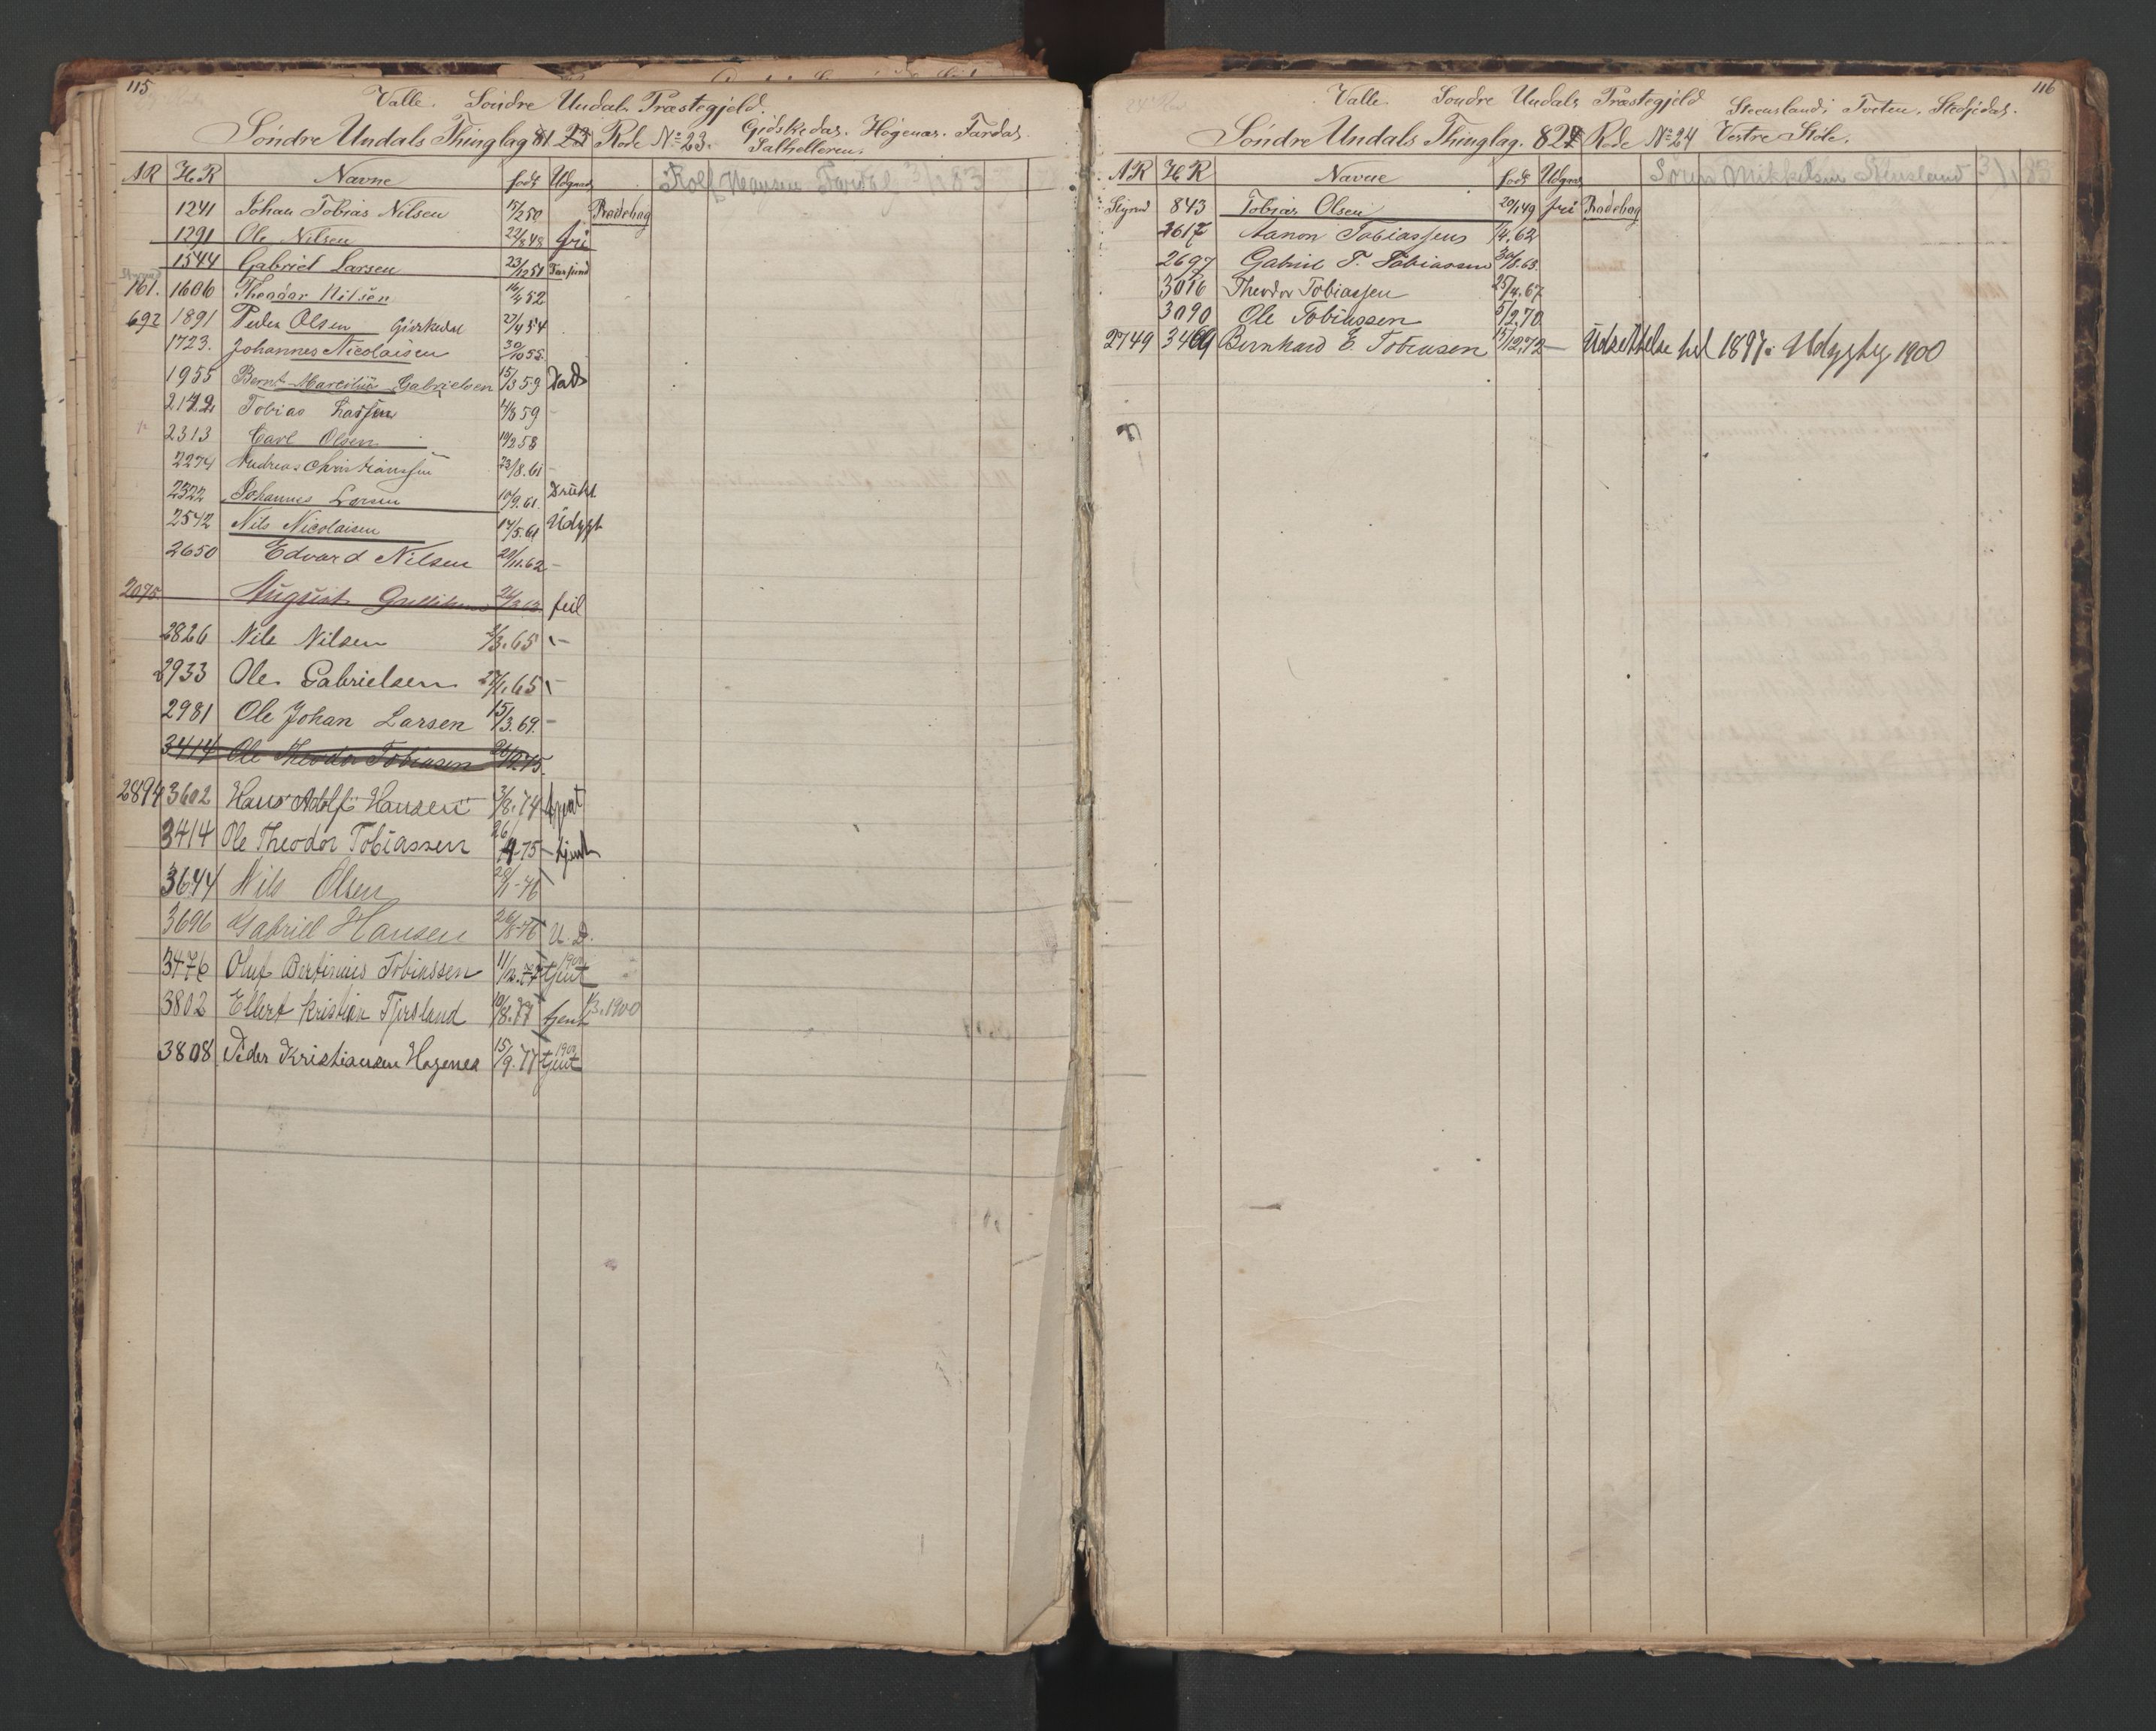 115
Valle. Søndre Undals Præstegjeld.
Søndre Undals Thinglag 81. 23 Rode No 23. Gidskedal. Høgenas. Fardal.
Salhelleren.
AR HR Navne født Udgaaet
Rolf Hansen Fardal 3/1 83
1241 Johan Tobias Nilsen 15/2 50 Rodebog
1291 Ole Nilsen 22/8 48 fri
1544 Gabriel Larsen 23/12 51 Farsund
161. 1606 Theodor Nilsen 16/4 52
692 1891 Peder Olsen Gidskedal 27/4 54
1723. Johannes Nicolaisen 30/10 55.
1955 Bernt Marcilius Gabrielsen 15/3 59 Død
2172 Tobias Larsen 4/8 59
2313 Carl Olsen 19/2 58
2274 Andreas Christianssen 23/8. 61 -
2322 Johannes Larsen 10/9. 61. Druknt
2542 Nils Nicolaisen 14/5. 61 Udygt
2650 Edvard Nilsen 29/11. 62 -
2095 August feil
2826 Nils Nilsen 2/3. 65 -
2933 Ole Gabrielsen 27/1. 65 -
2981 Ole Johan Larsen 15/3. 69. -
3414 Ole Theodor Tobiasen 75.
2894 3602 Hans Adolf Hansen 3/8. 74
3414 Ole Theodor Tobiassen 26/4-75 - tjent
3644 Nils Olsen 28/1-76
3696 Gabriel Hansen 26/8-76 U.D.
3476 Oluf Bertinius Tobiassen 11/12. 77 tjent 1900
3802 Ellert Kristian Tjersland 10/8. 77 tjent 1/3. 1900
3808 Peder Kristiansen Høgenes 15/9. 77 tjent 1900
116
Valle. Søndre Undals Præstegjeld Steensland, Tveten, Stedjedal.
Søndre Undals Thinglag. 82 Rode No 24 Vestre Skole.
AR HR Navne født Udgaaet
Søren Mikkelsen Stensland 3/1 83
843 Tobias Olsen 20/1 49 fri Rodebog
2617 Aanon Tobiassen 7/4. 62
2697 Gabriel T. Tobiassen 30/8. 63.
3016 Theodor Tobiassen 25/4. 67
3090 Ole Tobiassen 5/2. 70
2749 3469 Bernhard E. Tobiasen 15/12. 72 - Udsættelse til 1897. Udygtig 1900